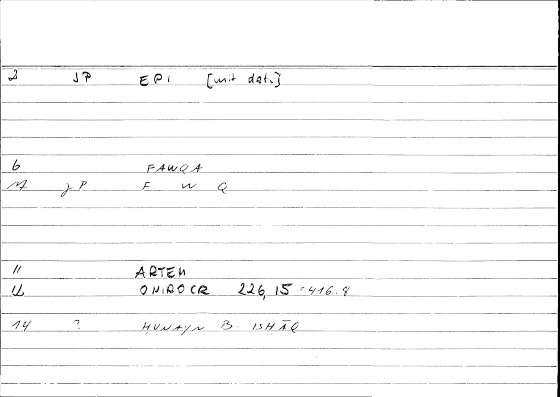 2 JP EPI [mit dat.]
6 FAWQA
JP F W Q
11 ARTEM
12 ONIROCR 226,15 - 416.8
14 ? HUNAYN B. ISHĀQ